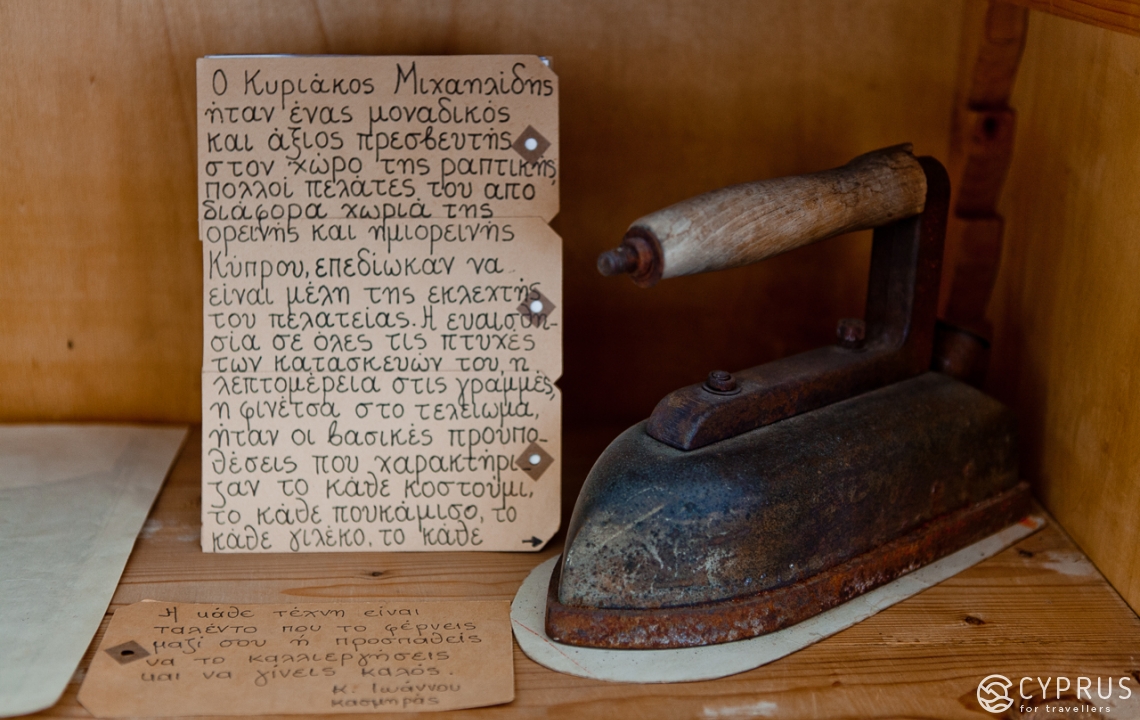 Ο Κυριάκος Μιχαηλίδης
ήταν ένας μοναδικός
και άξιος πρεσβευτής
στον χώρο της ραπτικής,
πολλοί πελάτες του από
διάφορα χωριά της
ορεινής και ημιορεινής
Κύπρου, επεδίωκαν να
είναι μέλη της εκλεχτής
του πελατείας. Η ευαισθη-
σία σε όλες τις πτυχές
των κατασκευών του, η
λεπτομέρεια στις γραμμές,
η φινέτσα στο τελείωμα,
ήταν οι βασικές προϋπο-
θέσεις που χαρακτήρι-
ζαν το κάθε κοστούμι,
το κάθε πουκάμισο, το
κάθε γιλέκο, το κάθε →
Η κάθε τέχνη είναι
ταλέντο που το φέρνεις
μαζί σου ή προσπαθείς
να το καλλιεργήσεις
και να γίνεις καλός.
Κ. Ιωάννου
κασμηράς
CYPRUS
for travellers